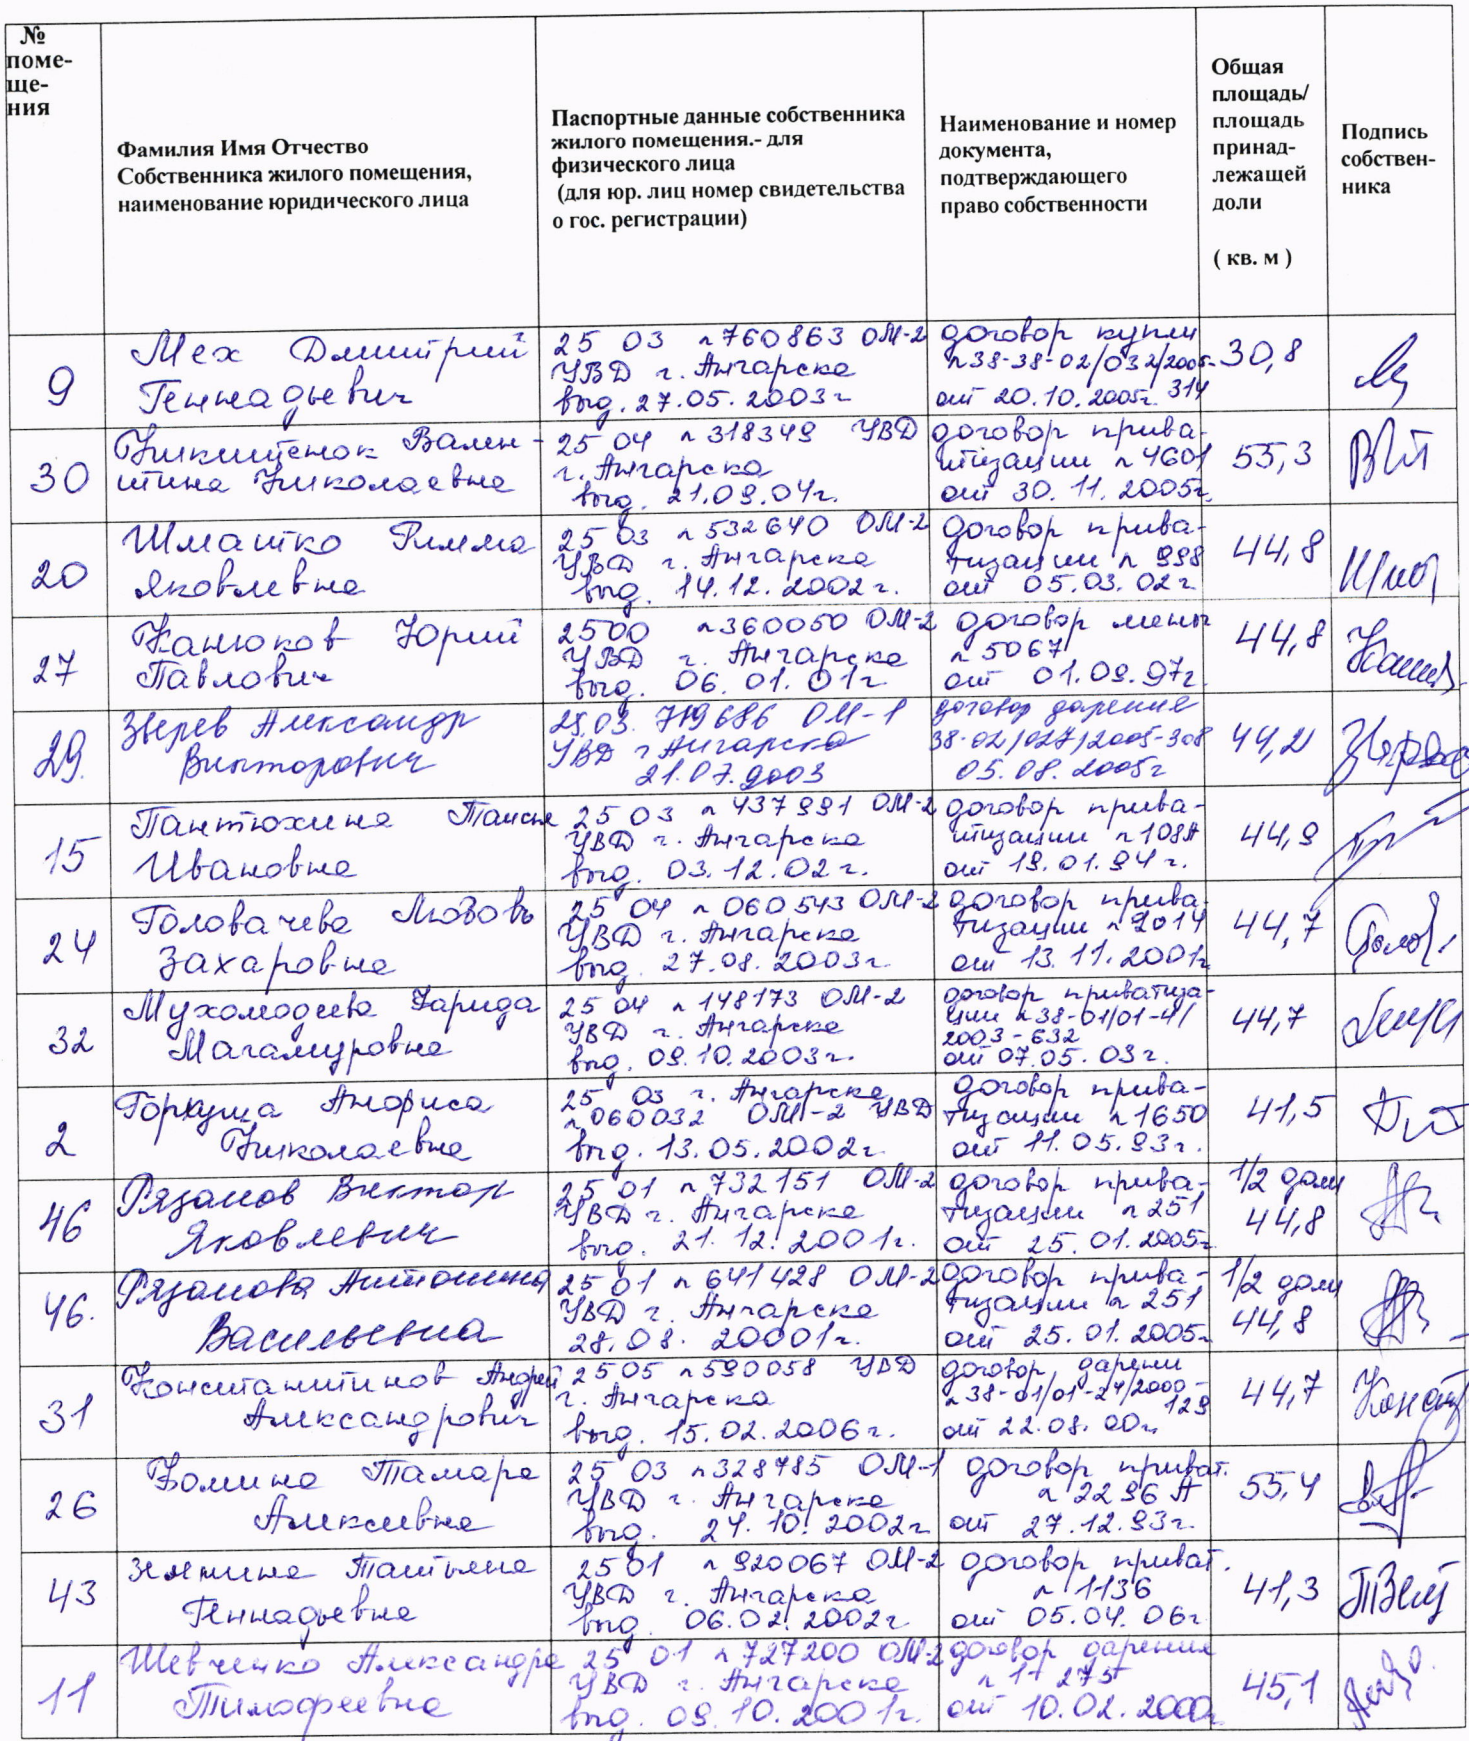 №
поме-
ще-
ния
Фамилия Имя Отчество
Собственника жилого помещения,
наименование юридического лица
Паспортные данные собственника
жилого помещения.- для
физического лица
(для юр. лиц номер свидетельства
о гос. регистрации)
Наименование и номер
документа,
подтверждающего
право собственности
Общая
площадь/
площадь
принад-
лежащей
доли
( кв. м )
Подпись
собствен-
ника
9
Мех Дмитрий
Геннадьевич
25 03 №760863 ОМ-2
УВД г. Ангарска
выд. 27.05.2003г
договор купли
№38-38-02/032/2005-
314
от 20.10.2005г.
30,8
30
Никитёнок Вален-
тина Николаевна
25 04 №318349 УВД
г. Ангарска
выд. 21.09.04г.
договор прива-
тизации №4601
от 30.11.2005г.
55,3
20
Шматко Римма
Яковлевна
25 03 №532640 ОМ-2
УВД г. Ангарска
выд. 14.12.2002г.
договор прива-
тизации №998
от 05.03.02г
44,8
27
Канюков Юрий
Павлович
2500 №360050 ОМ-2
УВД г. Ангарска
выд. 06.01.01г
договор мены
№5067
от 01.09.97г
44,8
29.
Зверев Александр
Викторович
25.03. 719686 ОМ-1
УВД г Ангарска
21.07.2003
договор дарения
38-02/027/2005-308
05.08.2005г
44,2
15
Пантюхина Таисия
Ивановна
25 03 №437991 ОМ-2
УВД г. Ангарска
выд. 03.12.02г.
договор прива-
тизации №108А
от 19.01.94г.
44,9
24
Головачева Любовь
Захаровна
25 04 №060543 ОМ-2
УВД г. Ангарска
выд. 27.08.2003г.
договор прива-
тизации №2014
от 13.11.2001г
44,7
32
Мухомодеева Фарида
Магамуровна
25 04 №148173 ОМ-2
УВД г. Ангарска
выд. 09.10.2003г.
договор приватиза-
ции №38-01/01-41/
2003-632
от 07.05.03г.
44,7
2
Горкуша Анфиса
Николаевна
25 03 г. Ангарска
№060032 ОМ-2 УВД
выд. 13.05.2002г.
договор прива-
тизации №1650
от 11.05.93г.
41,5
46
Рязанов Виктор
Яковлевич
25 01 №732151 ОМ-2
УВД г. Ангарска
выд. 21.12.2001г.
договор прива-
тизации №251
от 25.01.2005г
1/2 доли
44,8
46.
Рязанова Антонина
Васильевна
25 01 №641428 ОМ-2
УВД г. Ангарска
28.08.20001г.
договор прива-
тизации №251
от 25.01.2005г
1/2 доли
44,8
31
Константинов Андрей
Александрович
2505 №590058 УВД
г. Ангарска
выд. 15.02.2006г.
договор дарени
№38-01/01-24/2000-
129
от 22.08.00г.
44,7
26
Фомина Тамара
Алексеевна
25 03 №328785 ОМ-1
УВД г. Ангарска
выд. 24.10.2002г
договор приват.
№2296 А
от 27.12.93г.
55,4
43
Зелтина Татьяна
Геннадьевна
2501 №920067 ОМ-2
УВД г. Ангарска
выд. 06.02.2002г
договор приват.
№1136
от 05.04.06г
41,3
11
Шевченко Александра
Тимофеевна
25 01 №727200 ОМ-2
УВД г. Ангарска
выд. 09.10.2001г.
договор дарения
№11 275
от 10.02.2000г
45,1